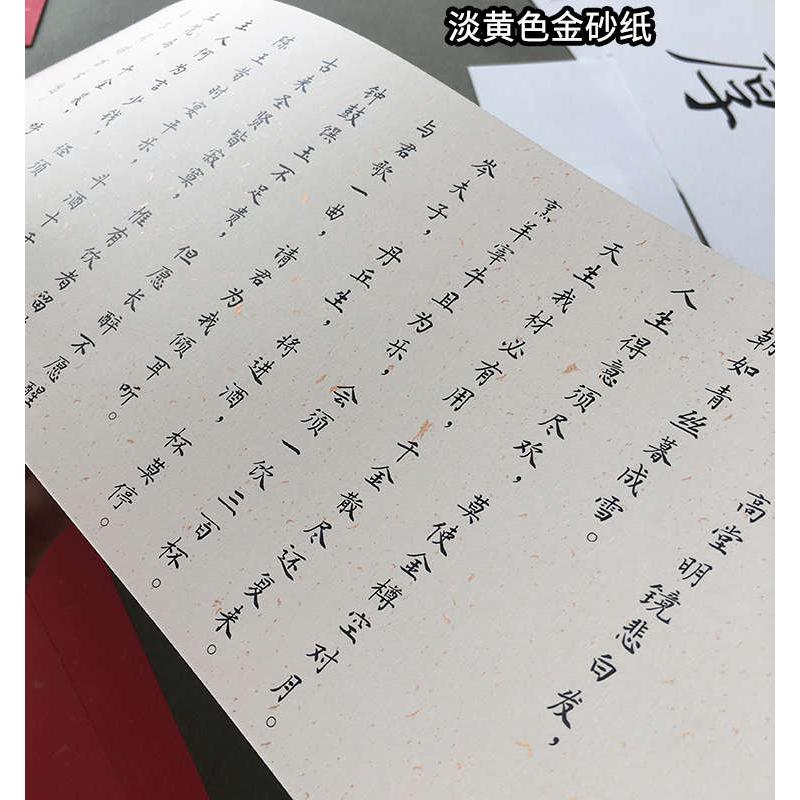 淡黄色金砂纸
高堂明镜悲白发，
朝如青丝暮成雪。
人生得意须尽欢，莫使金樽空对月。
天生我材必有用，千金散尽还复来。
烹羊宰牛且为乐，会须一饮三百杯。
岑夫子，丹丘生，将进酒，杯莫停。
与君歌一曲，请君为我倾耳听。
钟鼓玉不足贵，但愿长醉不愿醒
古来圣贤皆寂寞，惟有饮者留
陈王昔时宴平乐，斗酒十千
主人何为言少钱，径须
千金裘，